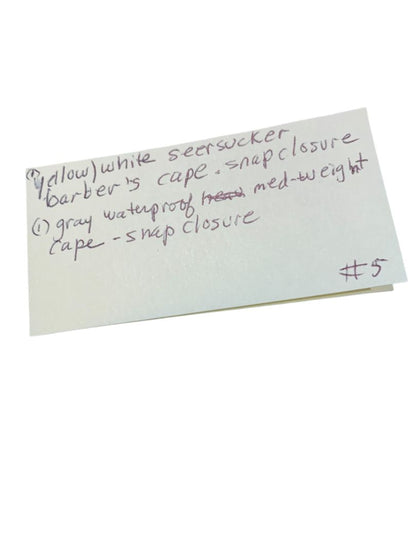 (1) yellow/white seersucker
barber's cape - snap closure
(1) gray waterproof med-weight
cape - snap closure
#5